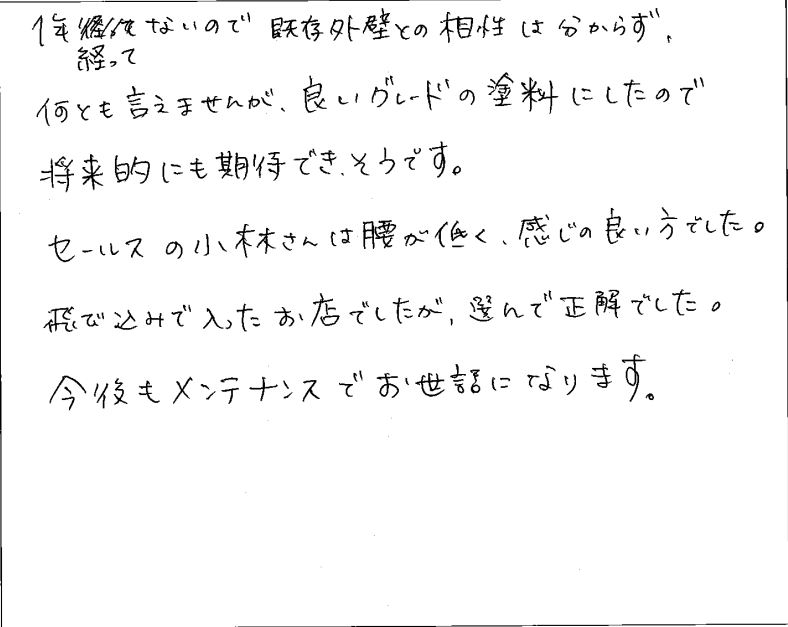 1年経ってないので 既存外壁との相性は分からず、
何とも言えませんが、良いグレードの塗料にしたので
将来的にも期待でき、そうです。
セールスの小林さんは腰が低く、感じの良い方でした。
飛び込みで入ったお店でしたが、選んで正解でした。
今後もメンテナンスでお世話になります。